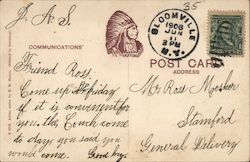 J. A. S.
35
BLOOMVILLE
1908
JUN
11
3 PM
N.Y.
COMMUNICATIONS
POST CARD
ADDRESS
Friend Ross.
Come up Friday
if it is convenient for
you. the Couch come
to day, you said you
would come. Good bye.
Mr Ross Mosher
Stamford
General Delivery